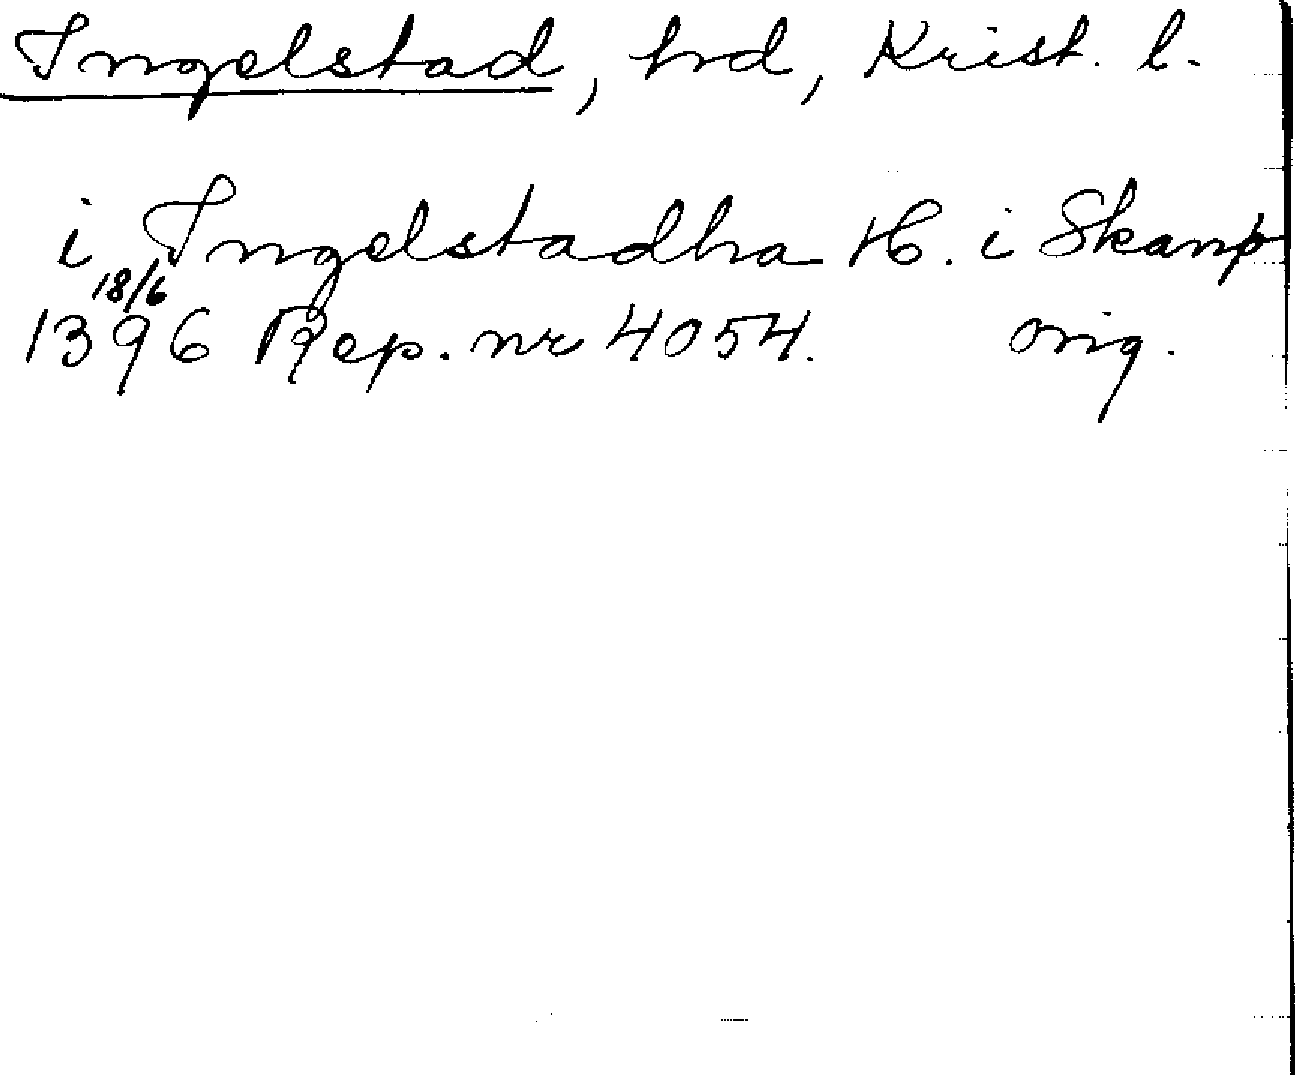 Ingelstad, hd, Krist. l.
i Ingelstadha H. i Skanp
18/6
1396 Rep. nr 4054. orig.